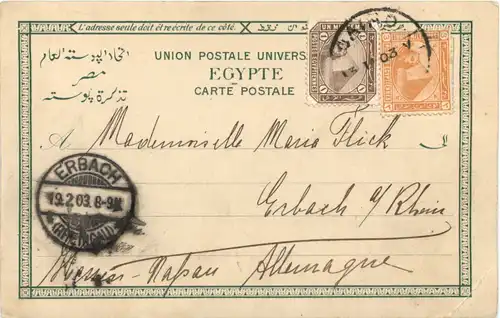 L'adresse seule doit être écrite de ce côté.
UNION POSTALE UNIVERS
EGYPTE
CARTE POSTALE
اتحاد البوستة العام
مصر
تذكرة بوسته
UN MILL
03
A Mademoiselle Maria Flick
ERBACH
19.2.03.8-9N
(RHEINGAU)
Erbach a/Rhein
Hessen-Nassau Allemagne